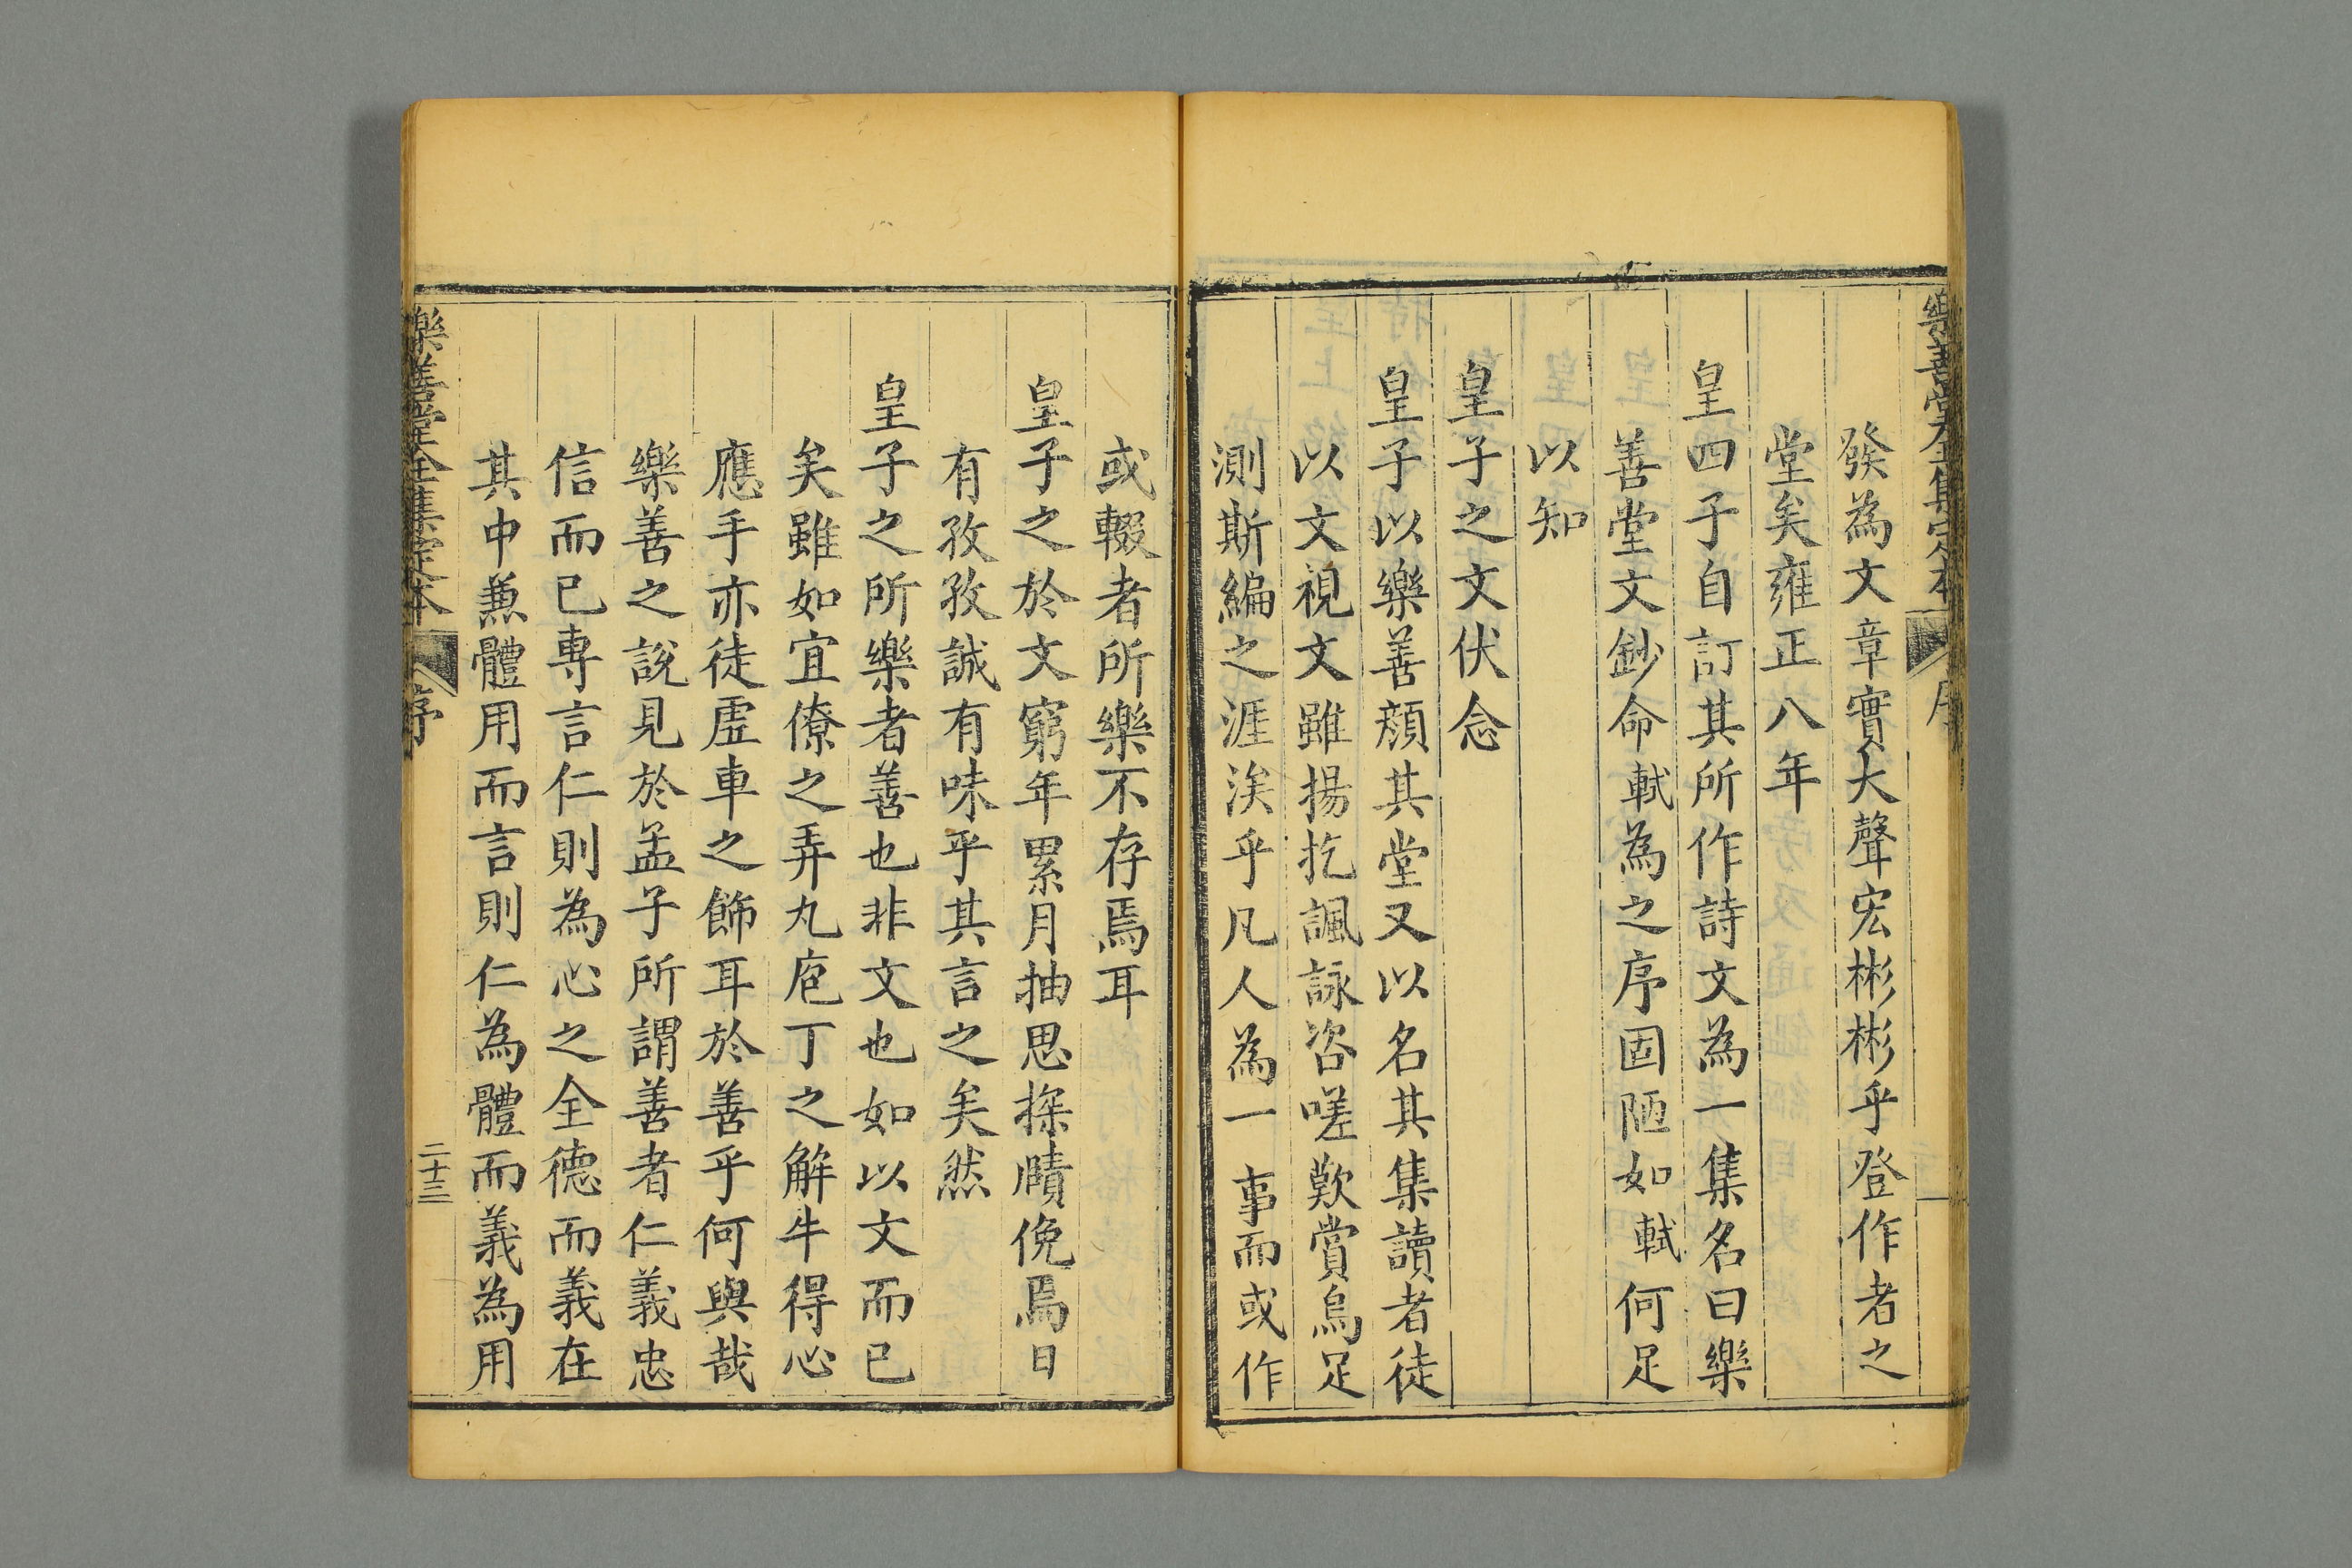 樂善堂全集定本 序
發為文章實大聲宏彬彬乎登作者之
堂矣雍正八年
皇四子自訂其所作詩文為一集名曰樂
善堂文鈔命軾為之序固陋如軾何足
以知
皇子之文伏念
皇子以樂善顏其堂又以名其集讀者徒
以文視文雖揚扢諷詠咨嗟歎賞烏足
測斯編之涯涘乎凡人為一事而或作
或輟者所樂不存焉耳
皇子之於文窮年累月抽思探賾俛焉日
有孜孜誠有味乎其言之矣然
皇子之所樂者善也非文也如以文而已
矣雖如宜僚之弄丸庖丁之解牛得心
應手亦徒虛車之飾耳於善乎何與哉
樂善之說見於孟子所謂善者仁義忠
信而已專言仁則為心之全德而義在
其中兼體用而言則仁為體而義為用
樂善堂全集定本 序 二十三